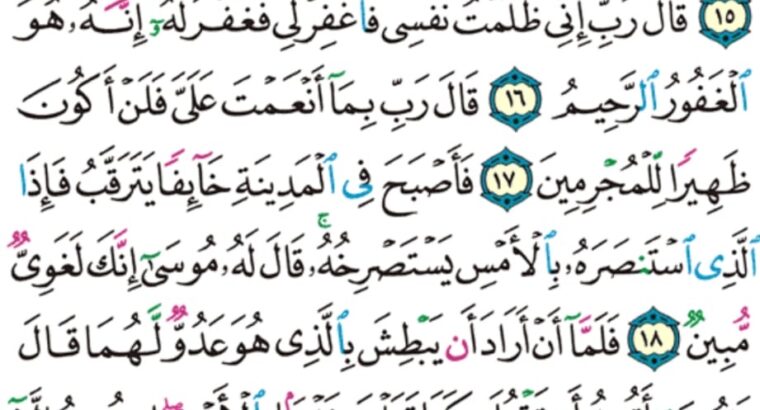 ١٥ قَالَ رَبِّ إِنِّى ظَلَمْتُ نَفْسِى فَٱغْفِرْ لِى فَغَفَرَ لَهُۥٓ إِنَّهُۥ هُوَ
ٱلْغَفُورُ ٱلرَّحِيمُ ١٦ قَالَ رَبِّ بِمَآ أَنْعَمْتَ عَلَىَّ فَلَنْ أَكُونَ
ظَهِيرًا لِّلْمُجْرِمِينَ ١٧ فَأَصْبَحَ فِى ٱلْمَدِينَةِ خَآئِفًا يَتَرَقَّبُ فَإِذَا
ٱلَّذِى ٱسْتَنصَرَهُۥ بِٱلْأَمْسِ يَسْتَصْرِخُهُۥۚ قَالَ لَهُۥ مُوسَىٰٓ إِنَّكَ لَغَوِىٌّ
مُّبِينٌ ١٨ فَلَمَّآ أَنْ أَرَادَ أَن يَبْطِشَ بِٱلَّذِى هُوَ عَدُوٌّ لَّهُمَا قَالَ